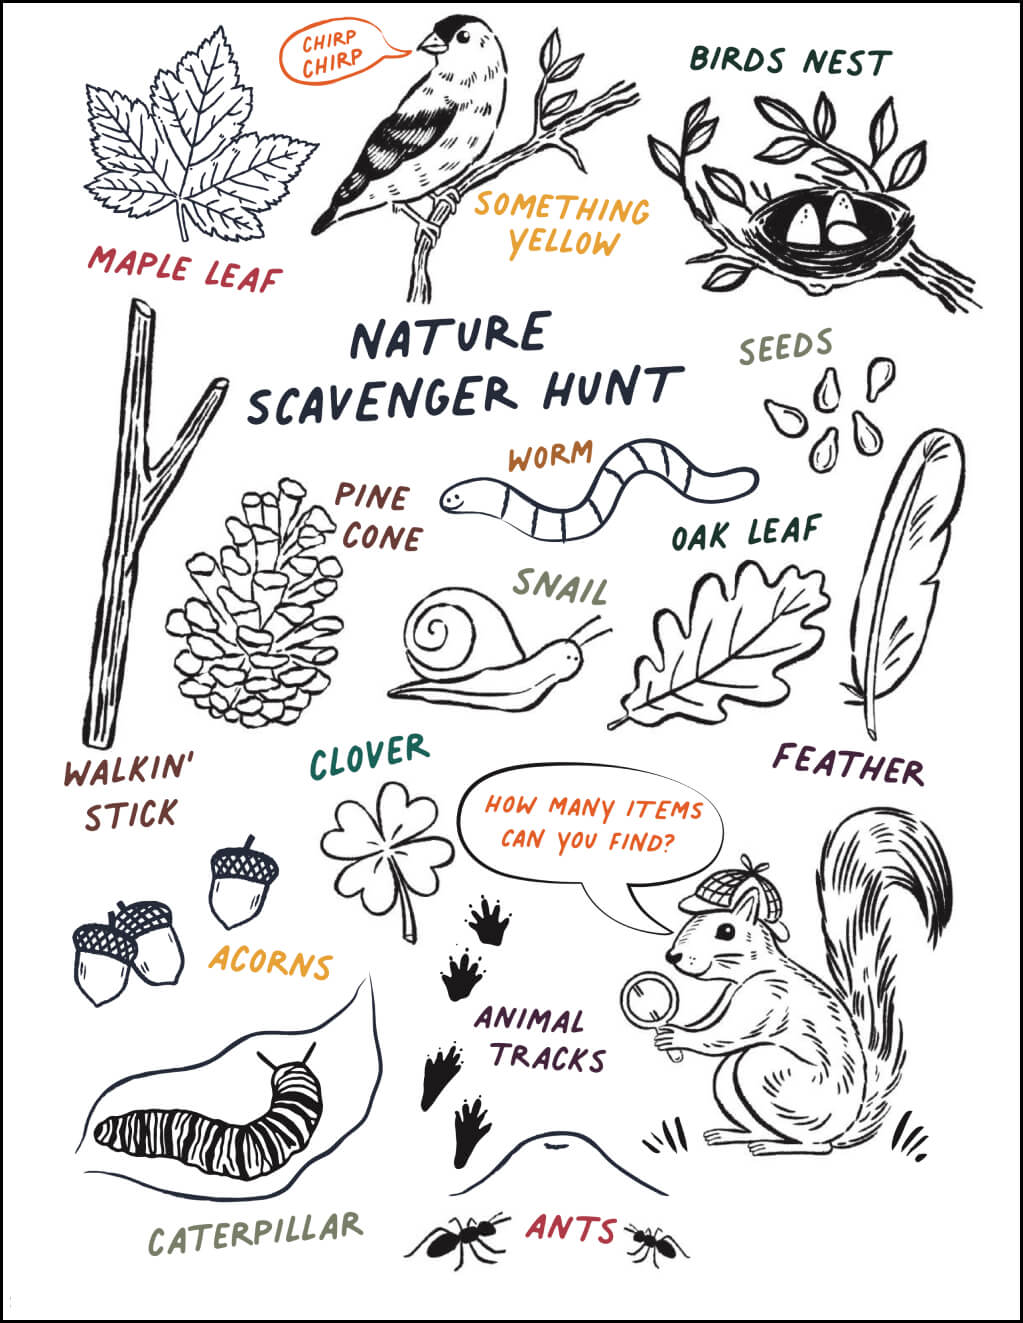 CHIRP
CHIRP
BIRDS NEST
SOMETHING
YELLOW
MAPLE LEAF
NATURE
SCAVENGER HUNT
SEEDS
WORM
PINE
CONE
OAK LEAF
SNAIL
WALKIN'
STICK
CLOVER
FEATHER
HOW MANY ITEMS
CAN YOU FIND?
ACORNS
ANIMAL
TRACKS
CATERPILLAR
ANTS